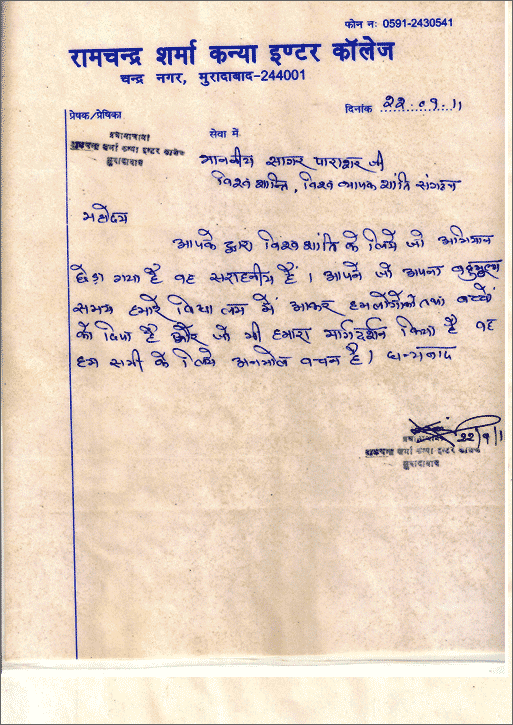 फोन नः 0591-2430541
रामचन्द्र शर्मा कन्या इण्टर कॉलेज
चन्द्र नगर, मुरादाबाद-244001
दिनांक 22.09.11
प्रेषक/प्रेषिका
प्रधानाचार्या
रामचन्द्र शर्मा कन्या इण्टर कालेज
मुरादाबाद
सेवा में
माननीय सागर पाराशर जी
विश्व शान्ति, विश्व व्यापक शांति संगठन
महोदय
आपके द्वारा विश्व शांति के लिये जो अभियान
छेड़ा गया है वह सराहनीय है। आपने जो अपना बहुमूल्य
समय हमारे विद्यालय में आकर हम लोगों को तथा बच्चों
को दिया है और जो भी हमारा मार्गदर्शन किया है वह
हम सभी के लिये अनमोल वचन है। धन्यवाद
22/9/1
प्रधानाचार्या
रामचन्द्र शर्मा कन्या इण्टर कालेज
मुरादाबाद